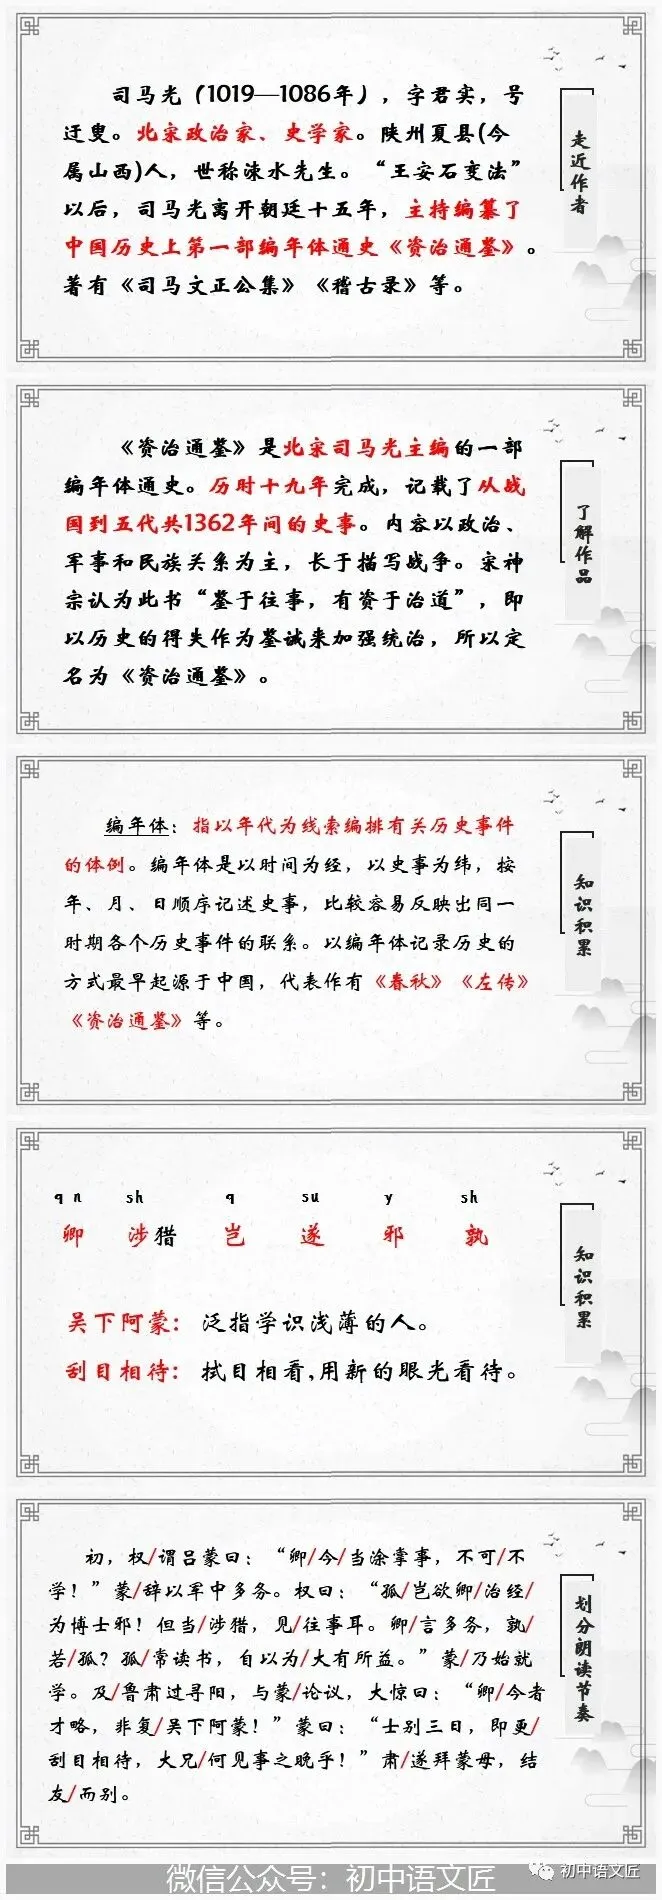 司马光（1019—1086年），字君实，号
迂叟。北宋政治家、史学家。陕州夏县(今
属山西)人，世称涑水先生。“王安石变法”
以后，司马光离开朝廷十五年，主持编纂了
中国历史上第一部编年体通史《资治通鉴》。
著有《司马文正公集》《稽古录》等。
走近作者
《资治通鉴》是北宋司马光主编的一部
编年体通史。历时十九年完成，记载了从战
国到五代共1362年间的史事。内容以政治、
军事和民族关系为主，长于描写战争。宋神
宗认为此书“鉴于往事，有资于治道”，即
以历史的得失作为鉴诫来加强统治，所以定
名为《资治通鉴》。
了解作品
编年体：指以年代为线索编排有关历史事件
的体例。编年体是以时间为经，以史事为纬，按
年、月、日顺序记述史事，比较容易反映出同一
时期各个历史事件的联系。以编年体记录历史的
方式最早起源于中国，代表作有《春秋》《左传》
《资治通鉴》等。
知识积累
q n sh q su y sh
卿 涉猎 岂 遂 邪 孰
吴下阿蒙：泛指学识浅薄的人。
刮目相待：拭目相看,用新的眼光看待。
知识积累
初，权/谓吕蒙曰：“卿/今/当涂掌事，不可/不
学！”蒙/辞以军中多务。权曰：“孤/岂欲卿/治经/
为博士邪！但当/涉猎，见/往事耳。卿/言多务，孰/
若/孤？孤/常读书，自以为/大有所益。”蒙/乃始就
学。及/鲁肃过寻阳，与蒙/论议，大惊曰：“卿/今者
才略，非复/吴下阿蒙！”蒙曰：“士别三日，即更/
刮目相待，大兄/何见事之晚乎！”肃/遂拜蒙母，结
友/而别。
划分朗读节奏
微信公众号：初中语文匠
初中语文匠